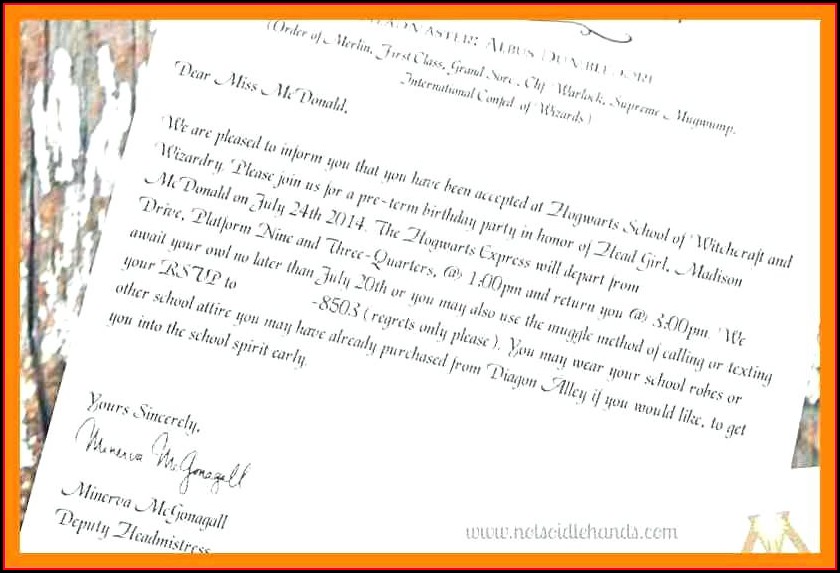 Albus Dumbledore
(Order of Merlin, First Class, Grand Sorc., Chf. Warlock, Supreme Mugwump,
International Confed. of Wizards)
Dear Miss McDonald,
We are pleased to inform you that you have been accepted at Hogwarts School of Witchcraft and
Wizardry. Please join us for a pre-term birthday party in honor of Head Girl, Madison
McDonald on July 24th 2014. The Hogwarts Express will depart from
Drive, Platform Nine and Three-Quarters, @ 1:00pm and return you @ 3:00pm. We
await your owl no later than July 20th or you may also use the muggle method of calling or texting
your RSVP to -8503 (regrets only please). You may wear your school robes or
other school attire you may have already purchased from Diagon Alley if you would like, to get
you into the school spirit early.
Yours Sincerely,
Minerva McGonagall
Minerva McGonagall
Deputy Headmistress
www.notsoidlehands.com